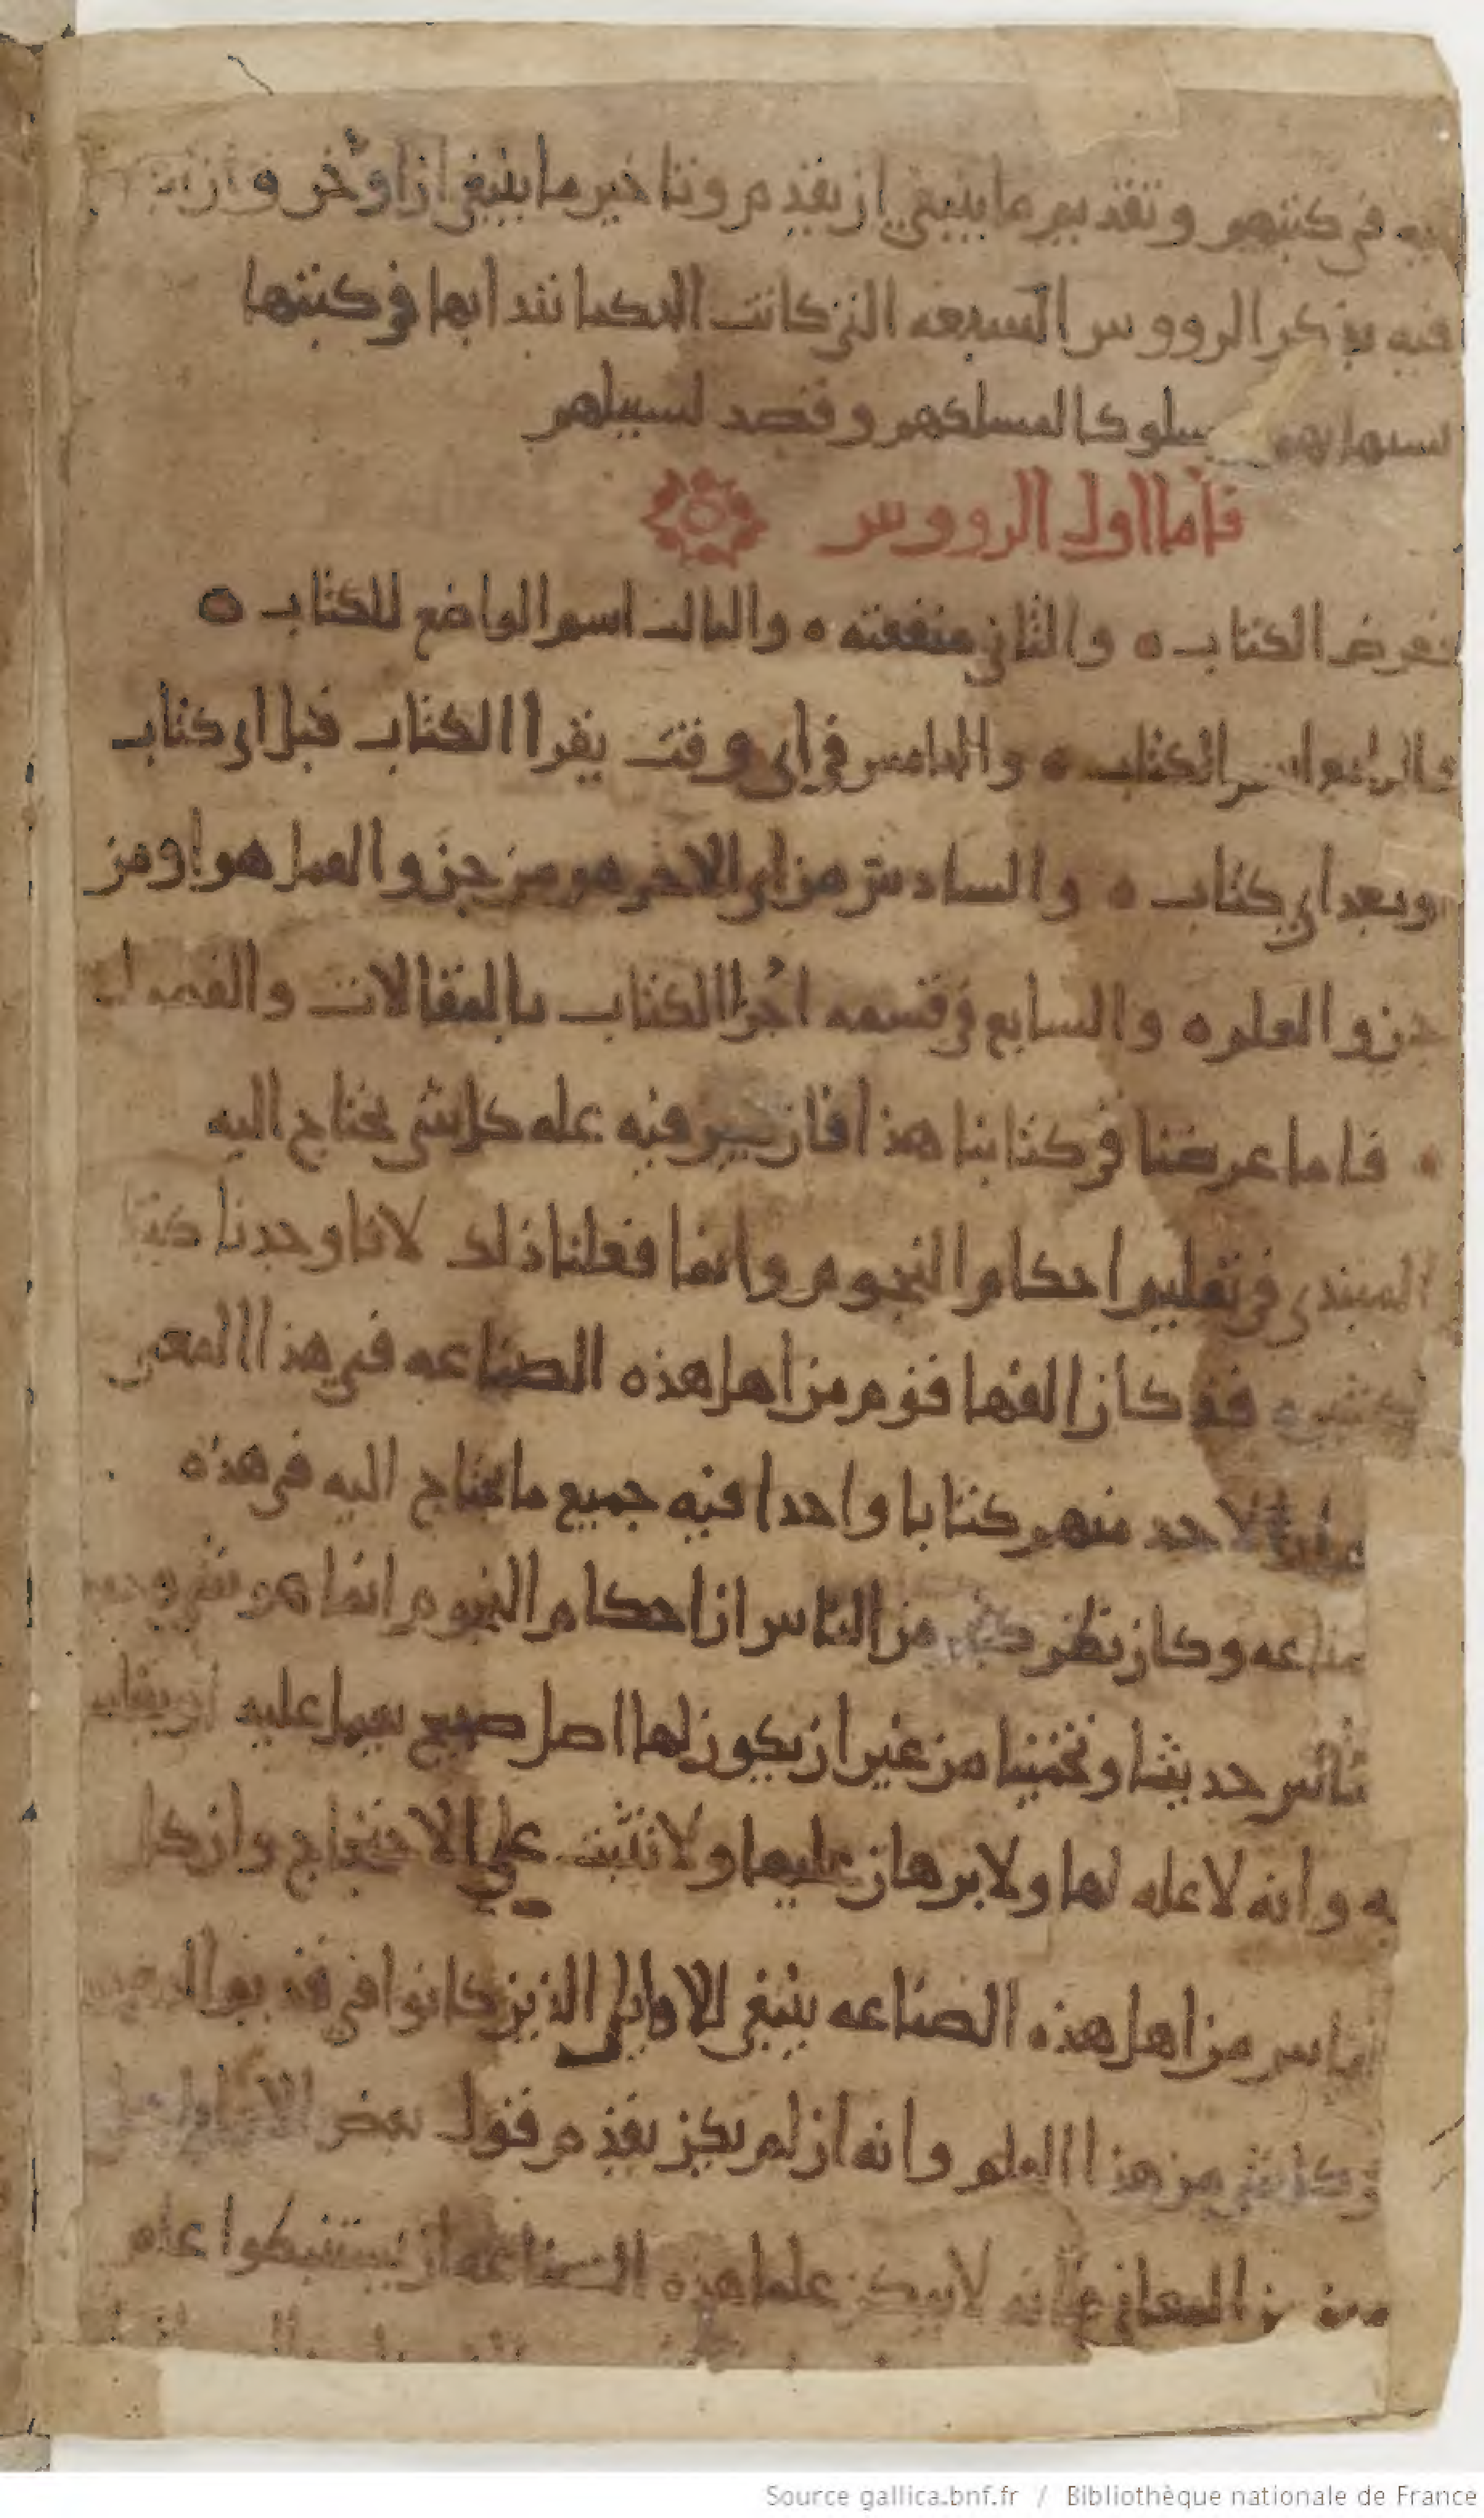 فيه في كتبهم وتقديم ما ينبغي ان يقدم وتاخير ما ينبغي ان اوخر
فيه بذكر الرووس السبعه التي كانت الحكما تبتدا بها في كتبها
سلوكا لمسلكهم وقصد لسبيلهم
فاما اول الرووس
فغرض الكتاب ه والثاني منفعته ه والثالث اسم الواضع للكتاب ه
والرابع اسم الكتاب ه والخامس في اي وقت يقرا الكتاب قبل اي كتاب
وبعد اي كتاب ه والسادس من اي الاجزا هو من جزو العمل هو او من
جزو العلم ه والسابع في قسمه اجزا الكتاب بالمقالات والفصول
ه فاما غرضنا في كتابنا هذا فان نبين فيه علة كل شي يحتاج اليه
المبتدي في تعليم احكام النجوم وانما فعلنا ذلك لانا وجدنا كتبا
كثيره قد كان الفها قوم من اهل هذه الصناعه في هذا المعنى
لاحد منهم كتابا واحدا فيه جميع ما يحتاج اليه في هذه
الصناعه وكان يظن كثير من الناس ان احكام النجوم انما هو شي وجده
الناس حديثا وتخمينا من غير ان يكون لها اصل صحيح يعمل عليه او يقاس
به وانه لا عله لها ولا برهان عليها ولا تثبت على الاحتجاج وان كل
الناس من اهل هذه الصناعه ينبغي للاوايل الذين كانوا في قديم الدهر
وكل شي من هذا العلم وانه ان لم يكن يقدم قول بعض الاوايل
من المعاني فانه لا يمكن علما هذه الصناعه ان يستنبطوا علم
Source gallica.bnf.fr / Bibliothèque nationale de France